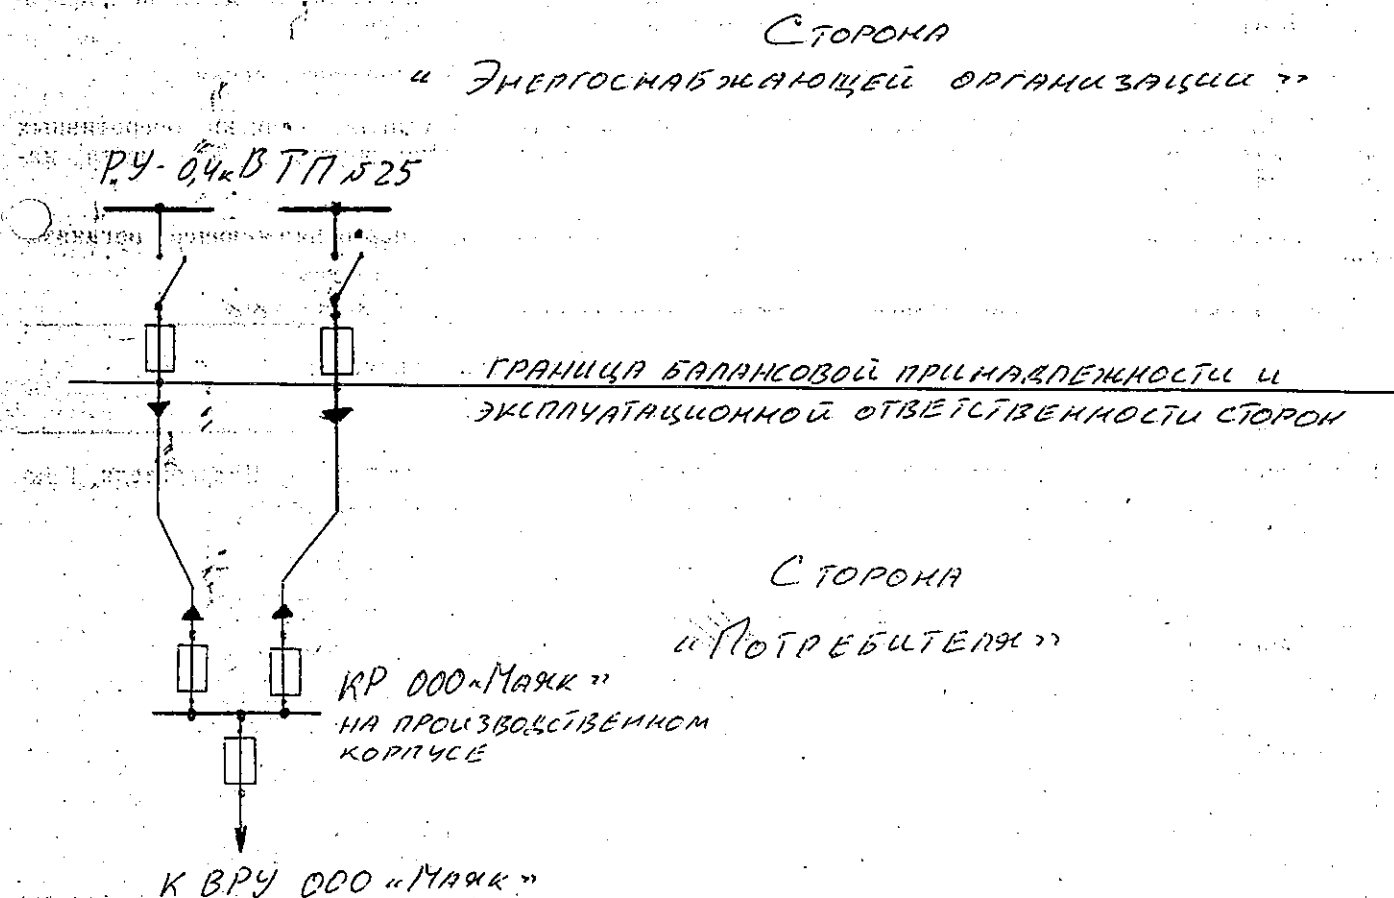 Сторона
« Энергоснабжающей организации »
РУ- 0,4кВ ТП №25
граница балансовой принадлежности и
эксплуатационной ответственности сторон
Сторона
«Потребителя»
КР ООО «Маяк»
на производственном
корпусе
К ВРУ ООО «Маяк»